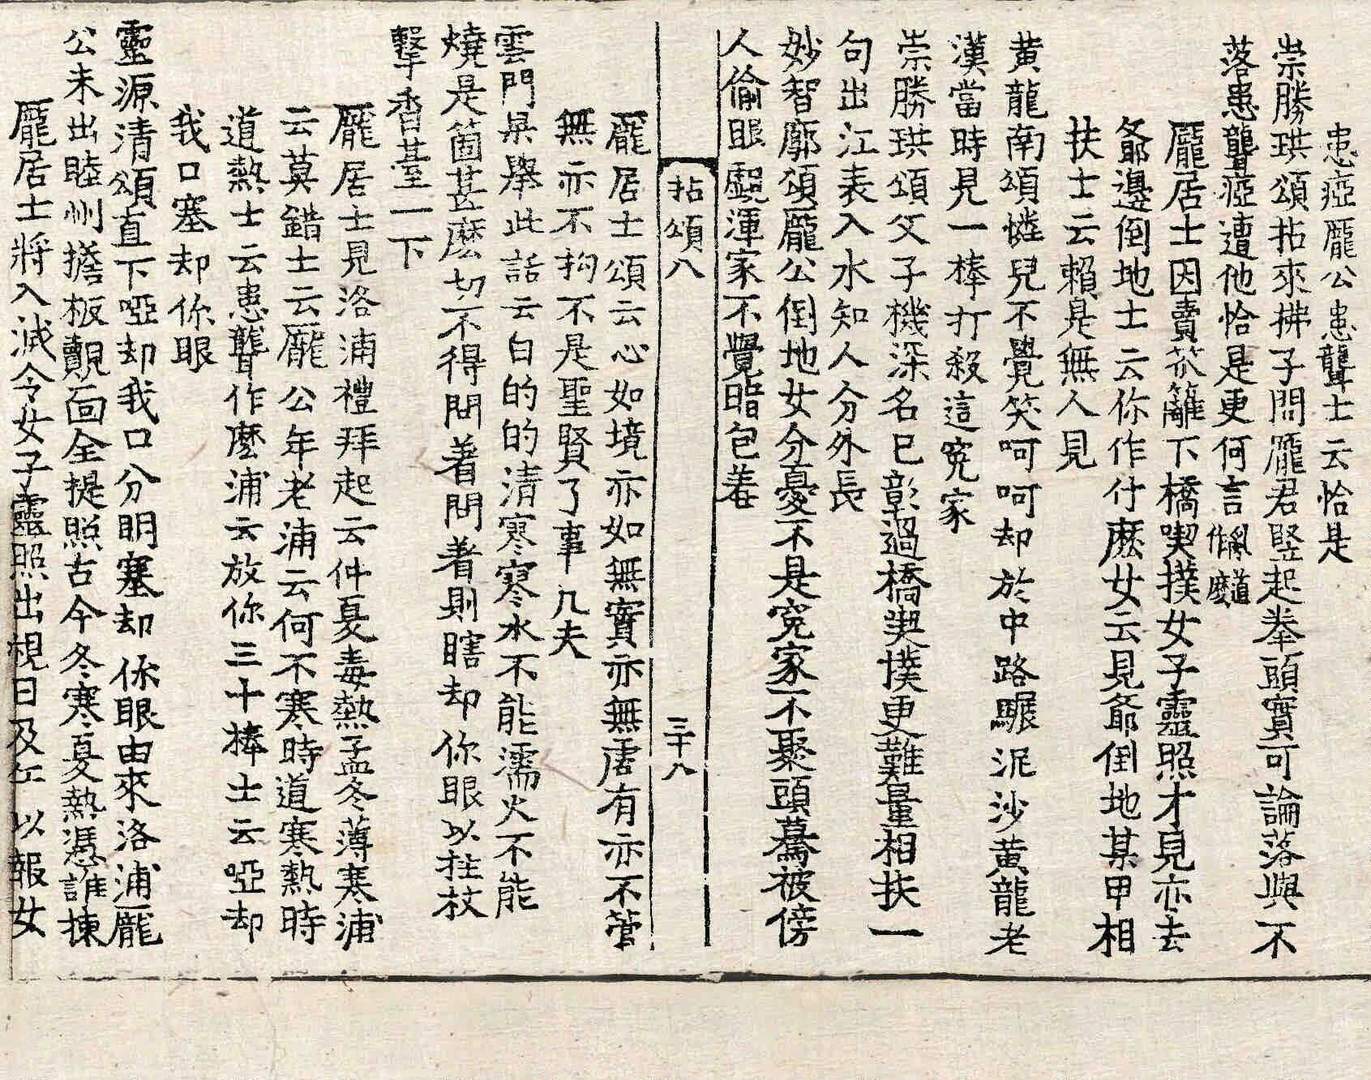 患瘂龐公患聾士云恰是
崇勝珙頌拈來拂子問龐君竪起拳頭實可論落與不
落患聾瘂遭他恰是更何言亂道作麼
龐居士因賣笊籬下橋喫撲女子靈照才見亦去
爺邊倒地士云你作什麽女云見爺倒地某甲相
扶士云賴是無人見
黄龍南頌憐兒不覺笑呵呵却於中路驟泥沙黄龍老
漢當時見一棒打殺這寃家
崇勝珙頌父子機深名已彰過橋喫撲更難量相扶一
句出江表入水知人分外長
妙智廓頌龐公倒地女分憂不是寃家不聚頭驀被傍
人偷眼覷渾家不覺暗包羞
拈頌八
三十八
龐居士頌云心如境亦如無實亦無虛有亦不管
無亦不拘不是聖賢了事凢夫
雲門杲舉此話云白的的清寒寒水不能濡火不能
燒是箇甚麽切不得問着問着則瞎却你眼以拄杖
擊香䑓一下
龐居士見洛浦禮拜起云仲夏毒熱孟冬薄寒浦
云莫錯士云龐公年老浦云何不寒時道寒熱時
道熱士云患聾作麽浦云放你三十棒士云啞却
我口塞却你眼
靈源清頌直下啞却我口分明塞却你眼由來洛浦龐
公未出睦州擔板覿面全提照古今冬寒夏熱憑誰揀
龐居士將入滅令女子靈照出視日及午以報女